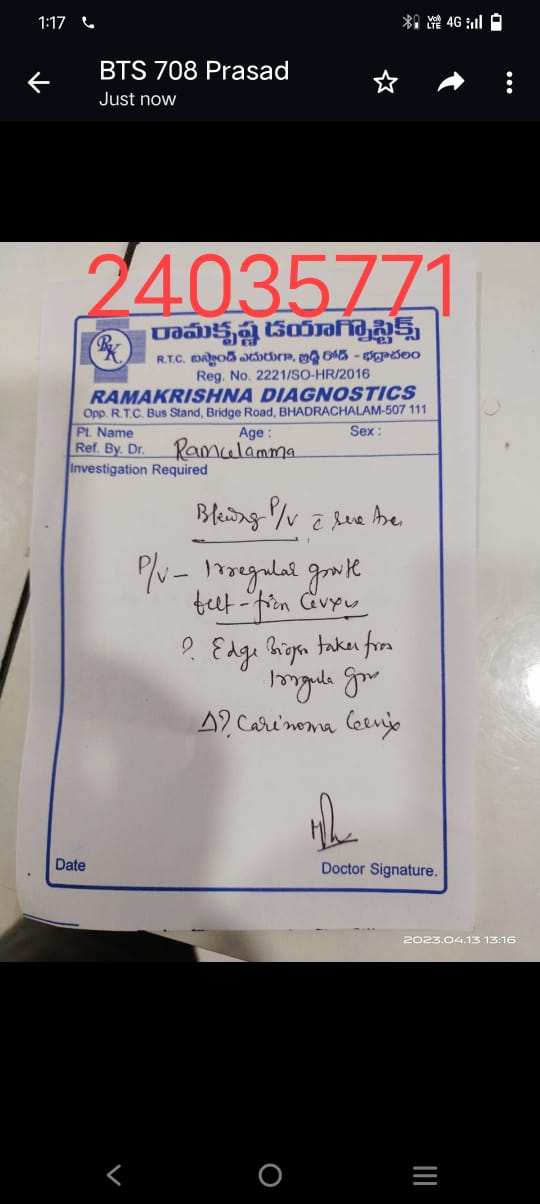 1:17
VoD LTE 4G
BTS 708 Prasad
Just now
24035771
రామకృష్ణ డయాగ్నొస్టిక్స్
RK
R.T.C. బస్టాండ్ ఎదురుగా, బ్రిడ్జి రోడ్ - భద్రాచలం
Reg. No. 2221/SO-HR/2016
RAMAKRISHNA DIAGNOSTICS
Opp. R.T.C. Bus Stand, Bridge Road, BHADRACHALAM-507 111
Pt. Name Age : Sex :
Ref. By. Dr.
Investigation Required
P/V c̄
P/V - Irregular growth
felt - from Cervix
? Edge taken from
Δ? Carinoma Cervix
Date Doctor Signature.
2023.04.13 13:16